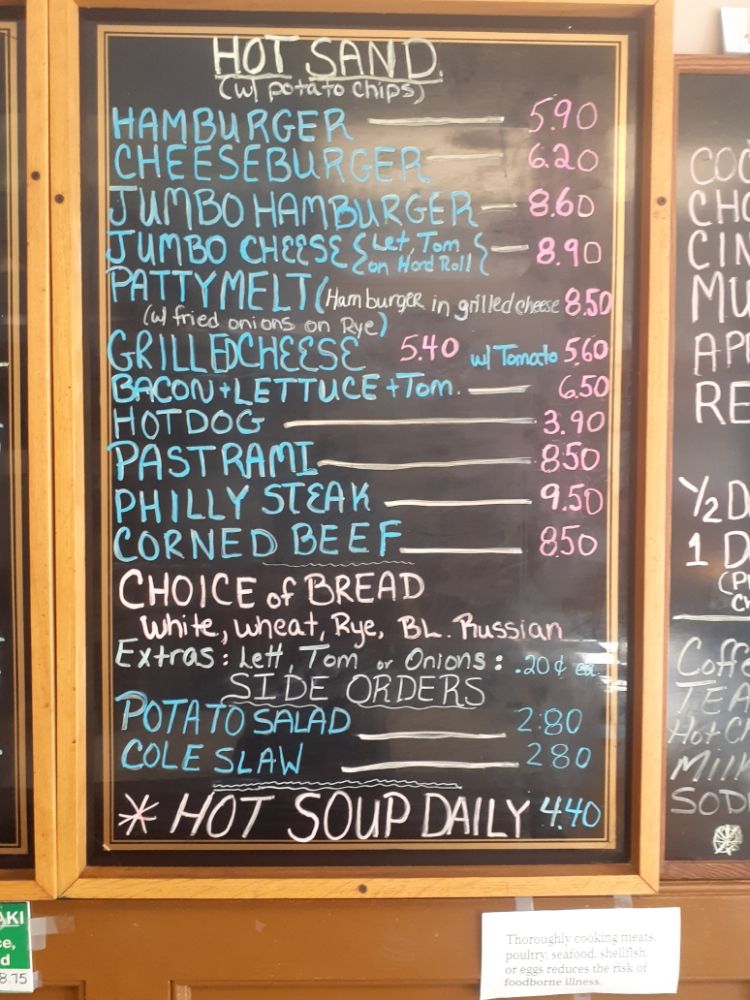 HOT SAND.
(w/ potato chips)
HAMBURGER 5.90
CHEESEBURGER 6.20
JUMBO HAMBURGER 8.60
JUMBO CHEESE {Let, Tom on Hard Roll} 8.90
PATTYMELT (Hamburger in grilled cheese 8.50
(w/ fried onions on Rye)
GRILLEDCHEESE 5.40 w/ Tomato 5.60
BACON+LETTUCE+Tom. 6.50
HOTDOG 3.90
PASTRAMI 8.50
PHILLY STEAK 9.50
CORNED BEEF 8.50
CHOICE of BREAD
White, wheat, Rye, BL. Russian
Extras: Lett, Tom or Onions: .20¢ ea.
SIDE ORDERS
POTATO SALAD 2.80
COLE SLAW 2 80
* HOT SOUP DAILY 4.40
COO
CHO
CIN
MU
API
RE
1/2 D
1 D
(P
C
Coff
TEA
Hot Ch
Milk
SOD
AKI
ce,
d
8.75
Thoroughly cooking meats,
poultry, seafood, shellfish,
or eggs reduces the risk of
foodborne illness.